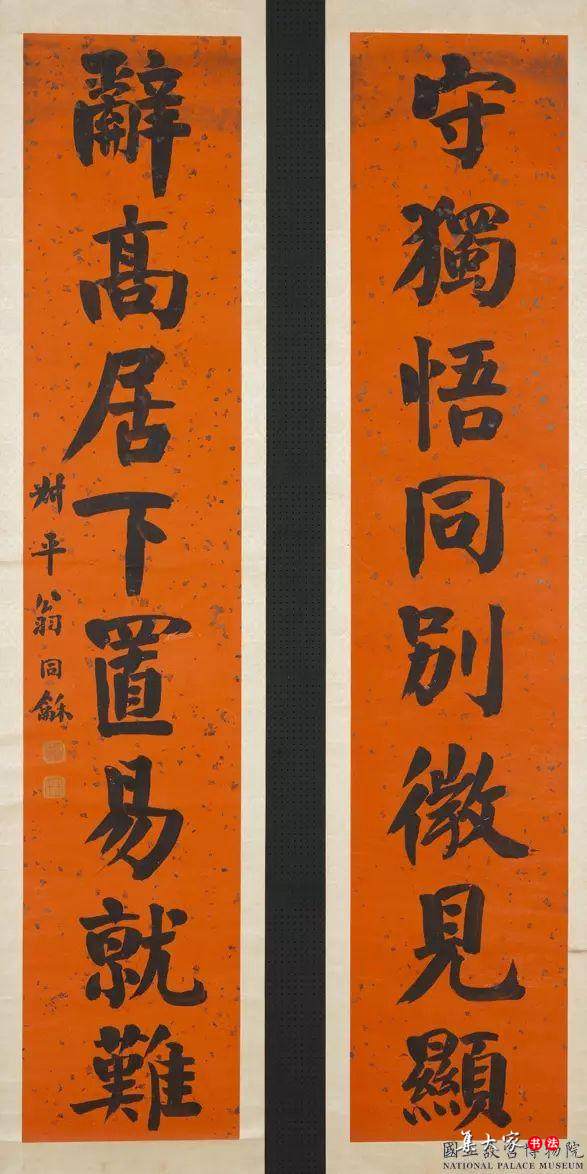 守獨悟同別微見顯
辭高居下置易就難
叔平翁同龢
集大家书法
國立故宮博物院
NATIONAL PALACE MUSEUM